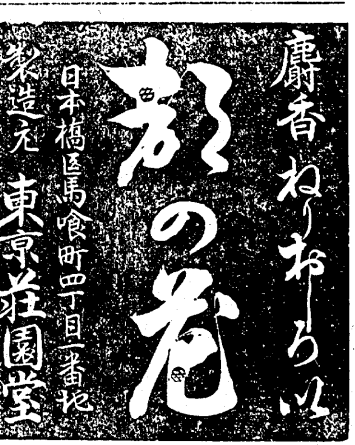 麝香ねりおしろい
都の花
日本橋区馬喰町四丁目一番地
製造元 東京荘園堂